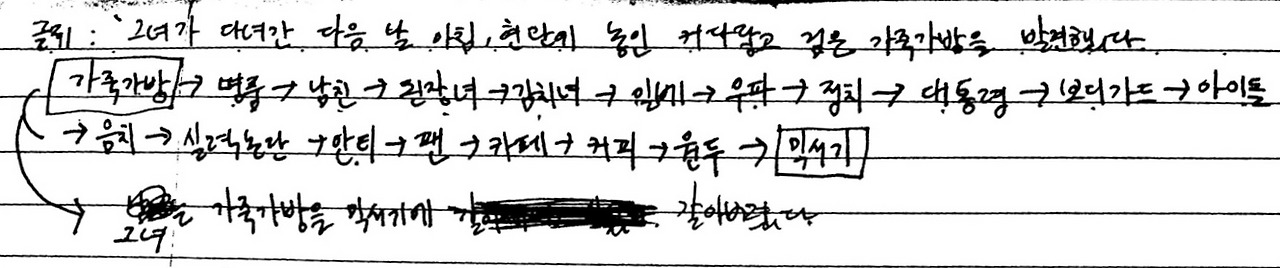 글쥐 : '그녀가 다녀간 다음 날 아침, 현관에 놓인 커다랗고 검은 가죽가방을 발견했다.
가죽가방 → 명품 → 남친 → 된장녀 → 김치녀 → 일베 → 우파 → 정치 → 대통령 → 보디가드 → 아이돌
→ 음치 → 실력논란 → 안티 → 팬 → 카페 → 커피 → 원두 → 믹서기
→ 그녀 가죽가방을 믹서기에 갈아버렸다.